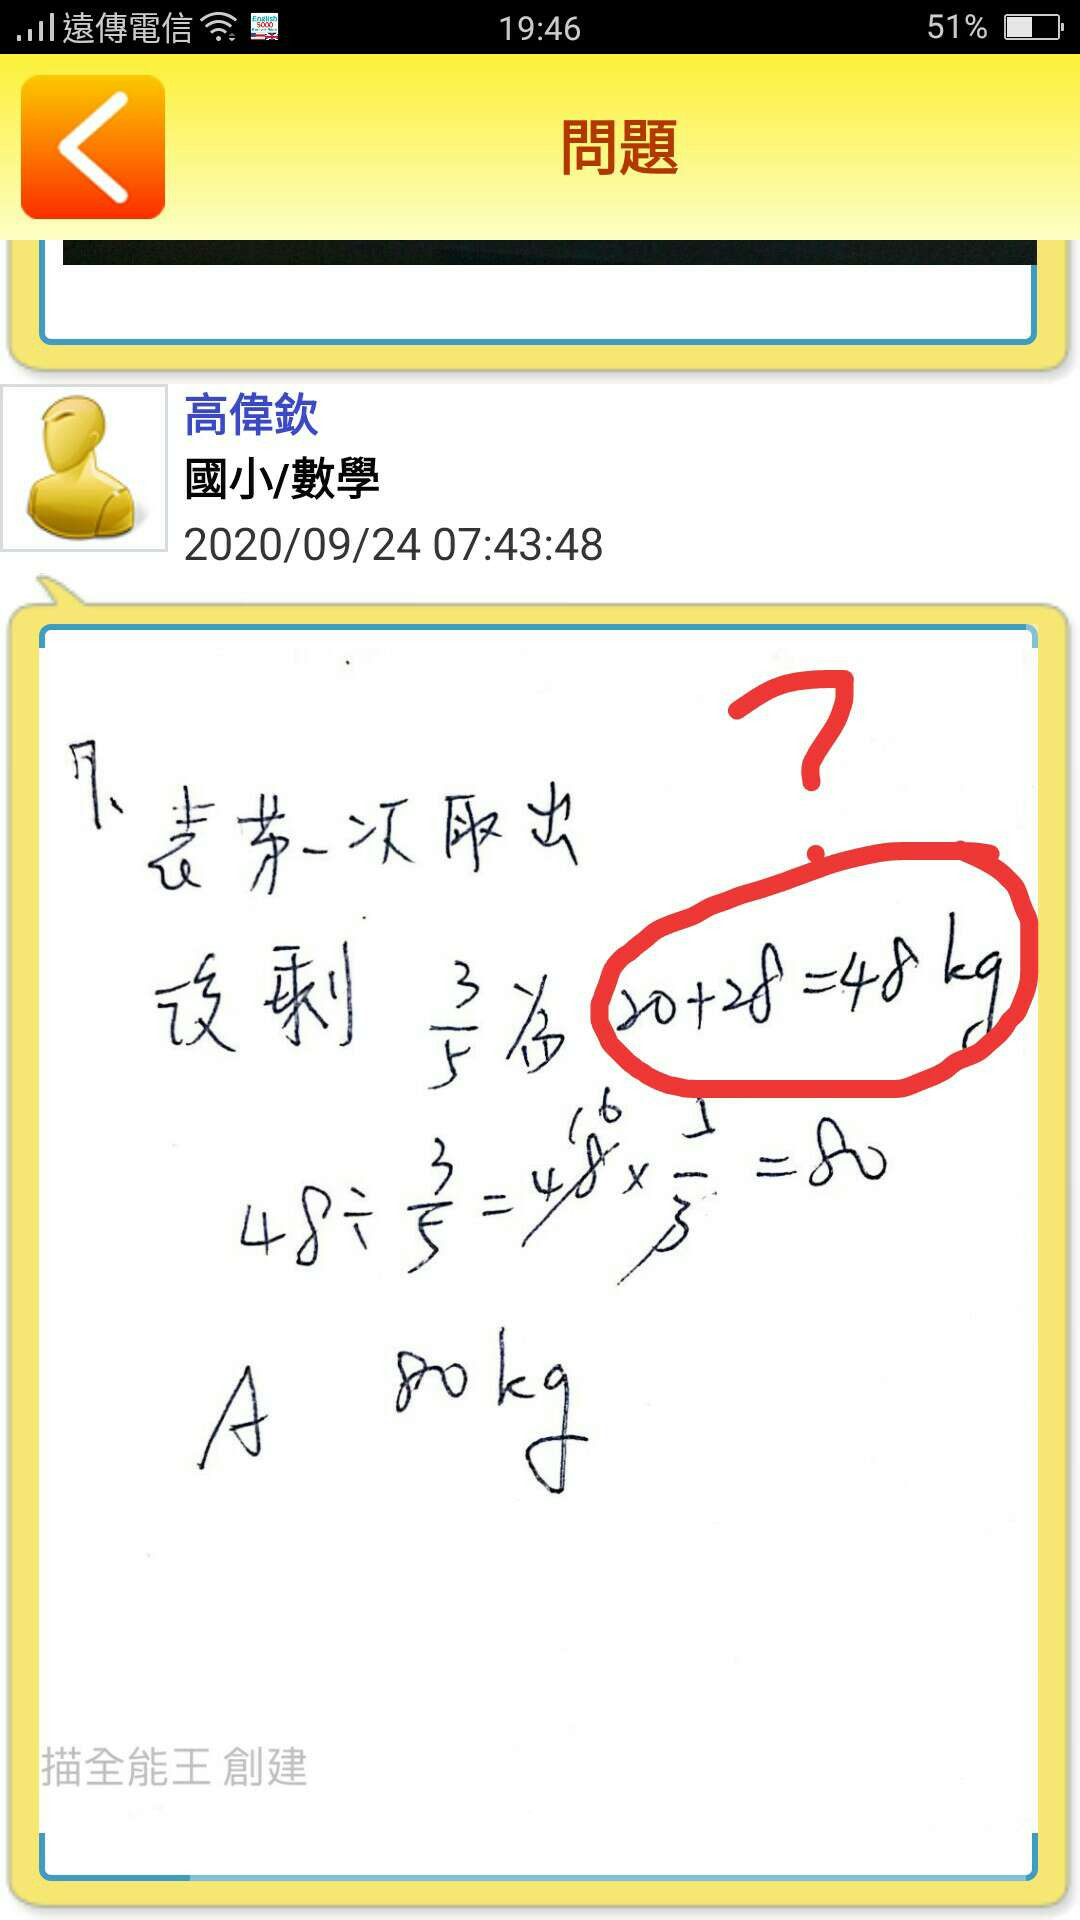 遠傳電信 English 5000 19:46 51%
問題
高偉欽
國小/數學
2020/09/24 07:43:48
?
7、
表第一次取出
後剩 3/5 為 20+28=48kg
48÷3/5=48×5/3=80
16
A 80kg
描全能王 創建